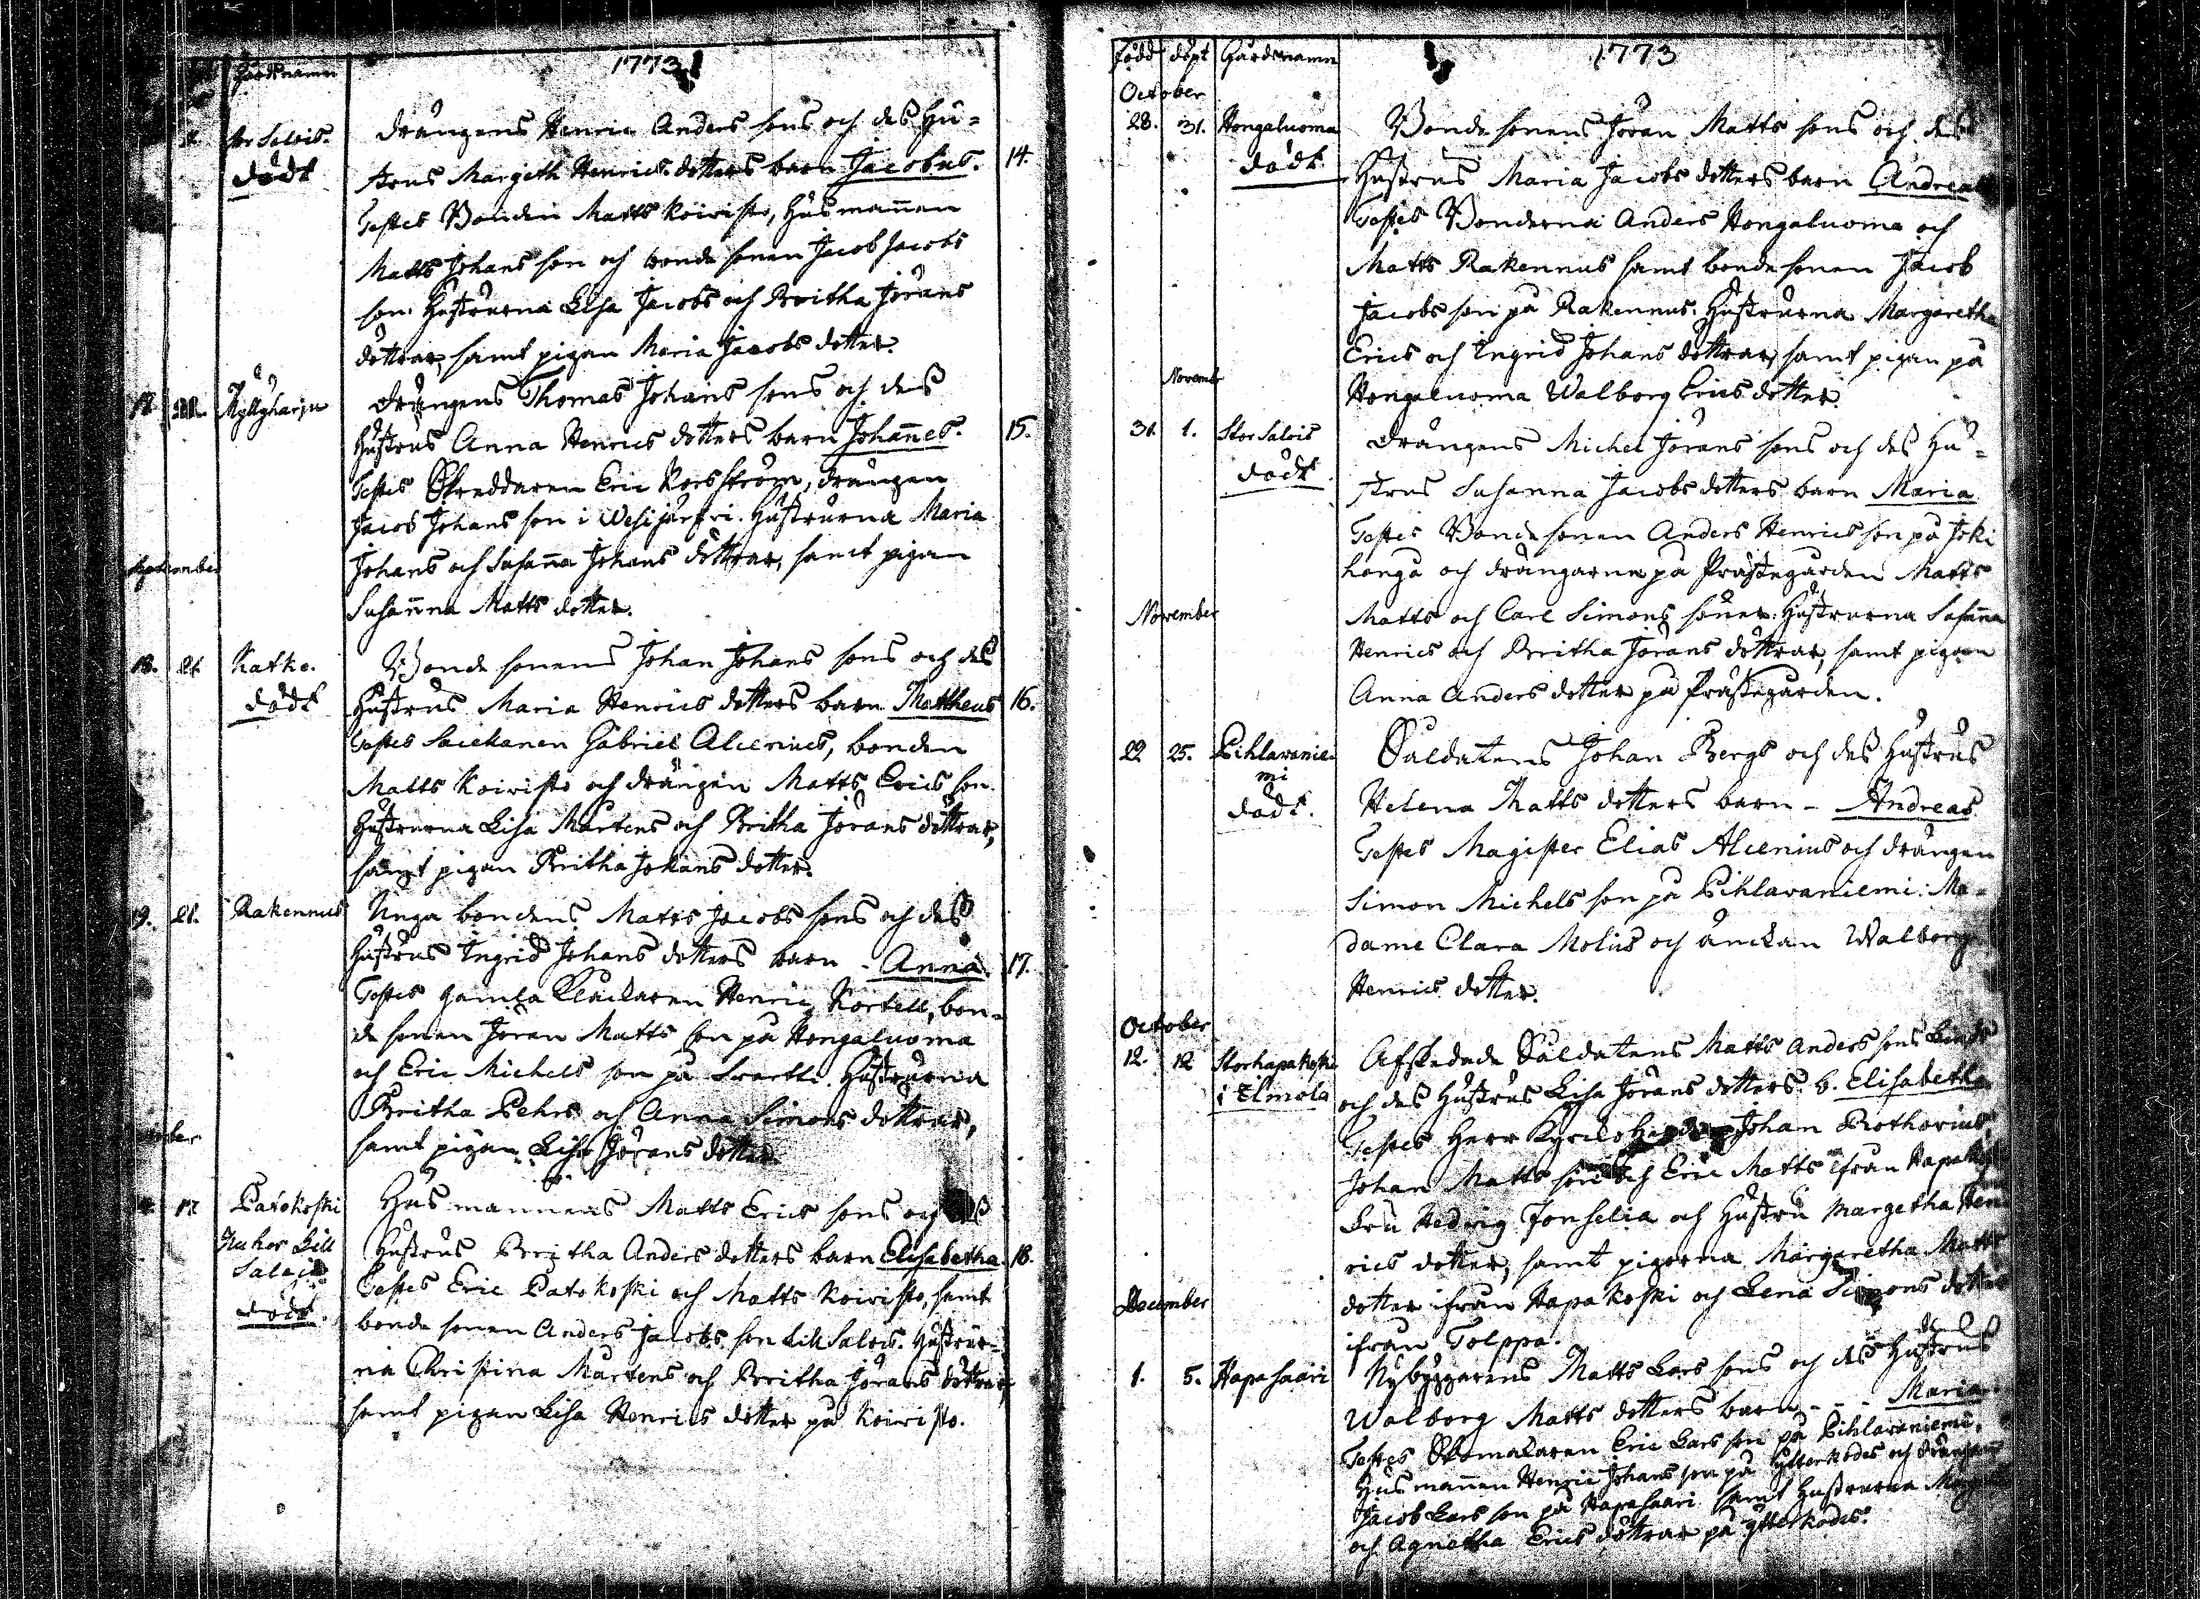 Gårdsnamn
1773
Stor Salvis.
dödt
Drängens Henric Anders sons och des Hu=
strus Margeth Henrics dotters barn Jacobus.
14.
Testes Bonden Matts Koivisto, Husmannen
Matts Johans son och bonde sonen Jacob Jacobs
son. Hustrurna Lisa Jacobs och Britha Jörans
döttrar, samt pigan Maria Jacobs dotter.
Kyllyharju
Drängens Thomas Johans sons och des
Hustrus Anna Henrics dotters barn Johannes.
15.
Testes Skreddaren Eric Korsström, drängen
Jacob Johans son i Wesijärfvi. Hustrurna Maria
Johans och Susanna Johans döttrar, samt pigan
Susanna Matts dotter.
September
18. 21. Katko.
dödt
Bonde sonens Johan Johans sons och des
Hustrus Maria Henrics dotters barn Mattheus
16.
Testes Gabriel Alcenius, bonden
Matts Koivisto och drängen Matts Erics son.
Hustrurna Lisa Mårtens och Britha Jörans döttrar,
samt pigan Britha Johans dotter.
19. 21. Rakennus
Unga bondens Matts Jacobs sons och des
Hustrus Ingrid Johans dotters barn - Anna.
17.
Testes gamla Klåckaren Henric Kortell, bon=
de sonen Jöran Matts son på Hongaluoma
och Eric Michels son på Svartti. Hustrurna
Britha Pehrs och Anna Simons döttrar,
samt pigan Lisa Jörans dotter.
17 Patokoski
Lill
Salvis
dödt.
Husmannens Matts Erics sons och des
Hustrus Britha Anders dotters barn Elisabetha.
18.
Testes Eric Patokoski och Matts Koivisto, samt
bonde sonen Anders Jacobs son Lill Salvis. Hustrur=
na Christina Mårtens och Britha Jörans döttrar,
samt pigan Lisa Henrics dotter på Koivisto.
född döpt Gårdsnamn
1773
October
28. 31. Hongaluoma
dödt.
Bonde sonens Jöran Matts sons och des
Hustrus Maria Jacobs dotters barn Andreas
Testes Bonderna Anders Hongaluoma och
Matts Rakennus samt bonde sonen Jacob
Jacobs son på Rakennus. Hustrurna Margaretha
Erics och Ingrid Johans döttrar, samt pigan på
Hongaluoma Walborg Erics dotter.
Novembr
31. 1. Stor Salvis
dödt.
Drängens Michel Jörans sons och des Hu=
strus Susanna Jacobs dotters barn Maria
Testes Bonde sonen Anders Henrics son på Joki
honga och drängarna på Prästegården Matts
November
Matts och Carl Simons söner. Hustrurna Susanna
Henrics och Britha Jörans döttrar, samt pigan
Anna Anders dotter på Prästegården.
22 25. Pihlavanie
mi
dödt.
Saldatens Johan Bergs och des Hustrus
Helena Matts dotters barn - Andreas.
Testes Magister Elias Alcenius och drängen
Simon Michels son på Pihlavaniemi: Ma=
dame Clara Molius och änckan Walborg
Henrics dotter.
October
12. 12 Storhapakoski
i Elmola
Afskedade Saldatens Matts Anders sons
och des Hustrus Lisa Jörans dotters b. Elisabetha
Testes Herr Johan Rothovius,
Johan Matts son och Eric Matts ifrån
Fru Hedvig Forselia och Hustru Margetha Hen
rics dotter, samt pigorna Margaretha Matts
December
dotter ifrån Hapakoski och Lena Simons dotter
ifrån Tolppa.
1. 5. Hapasaari
Nybyggarens Matts Lars sons och des Hustrus
Walborg Matts dotters barn - - - Maria
Testes Skomakaren Eric Lars son på Pihlavaniemi,
Husmannen Henric Johans son på Ytterkodes och drängen
Jacob Lars son på Hapasaari samt Hustrurna
och Agnetha Erics döttrar på Ytterkodes.